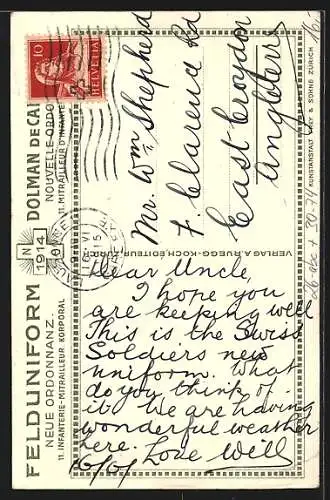 FELDUNIFORM
NEUE ORDONNANZ.
11. INFANTERIE-MITRAILLEUR KORPORAL
1914
DOLMAN DE CA
NOUVELLE ORDO
11. MITRAILLEUR D'INFANTE
10
HELVETIA
VERLAG A. RUEGG-KOCH, EDITEUR, ZURICH
Mr. Wm Shepherd
7. Clarend Rd
East Croydon
Dear Uncle,
I hope you
are keeping well
This is the Swiss
Soldiers new
uniform. What
do you think of
it. We are having
wonderful weather
here. Love Will
& SÖHNE ZÜRICH